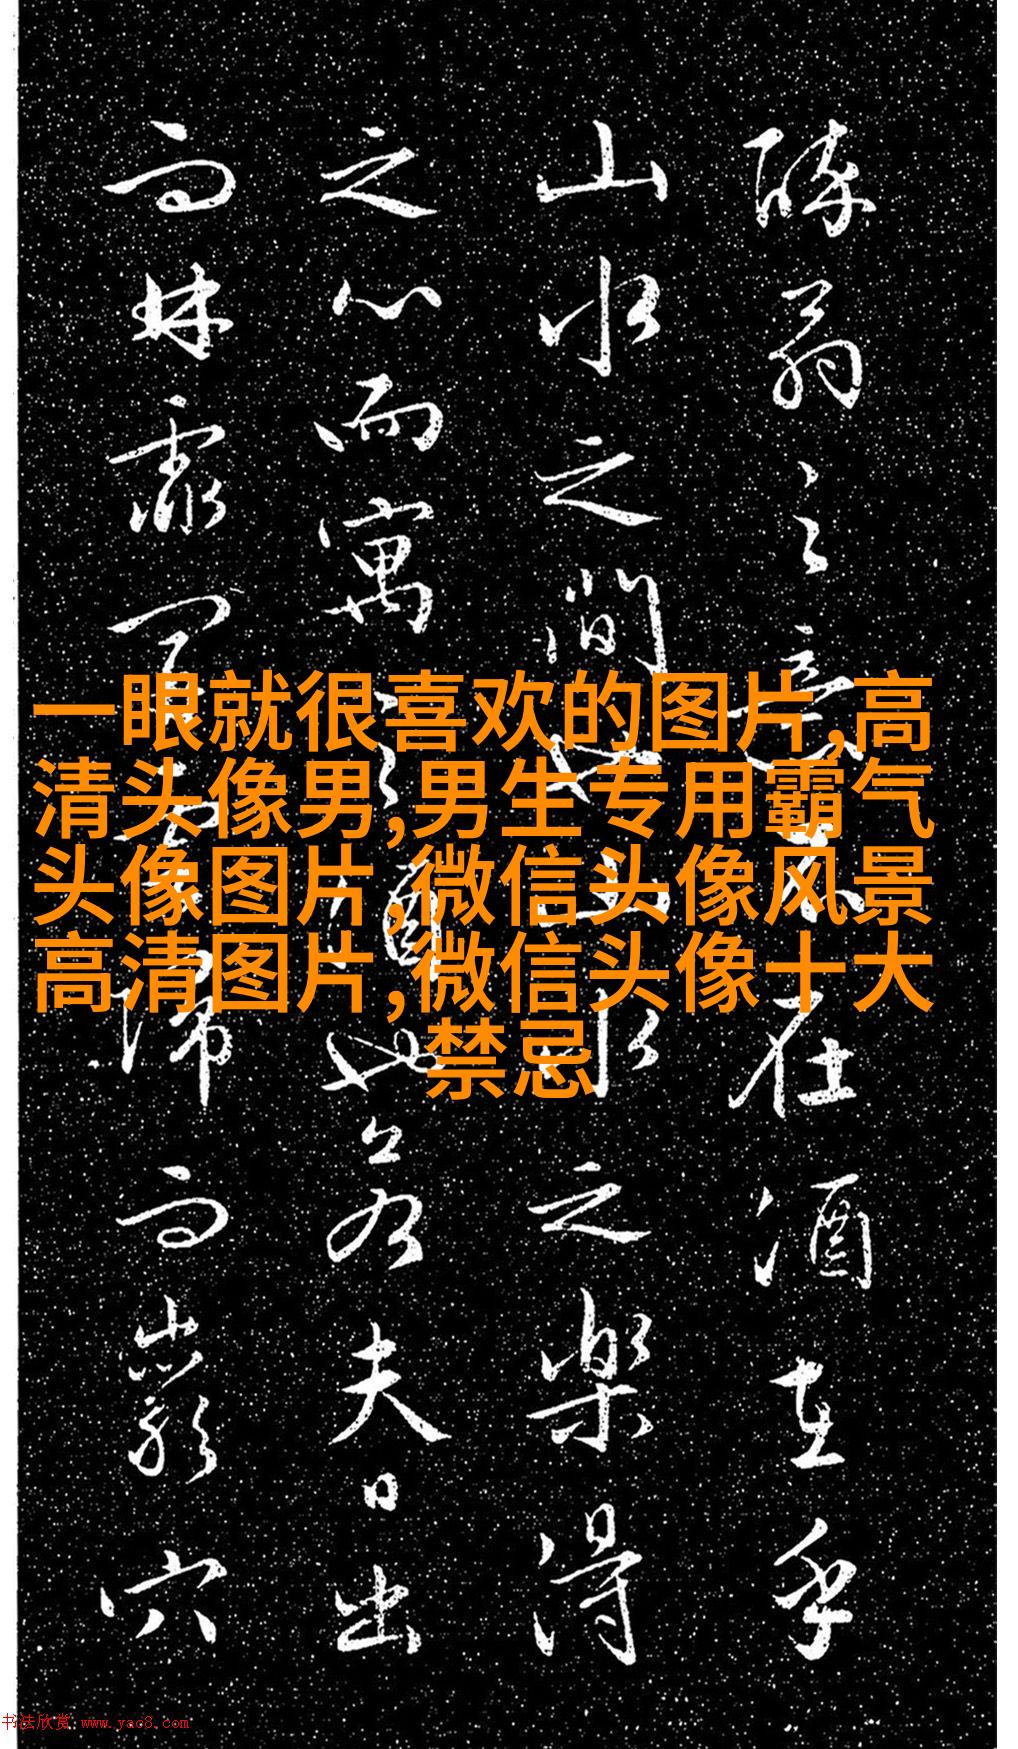 一眼就很喜欢的图片,高
清头像男,男生专用霸气
头像图片,微信头像风景
高清图片,微信头像十大
禁忌
醉翁之意不在酒在乎
山水之間也山水之樂得
之心而寓之酒也若夫日出
而林霏開雲歸而巖穴
书法欣赏 www.yac8.com